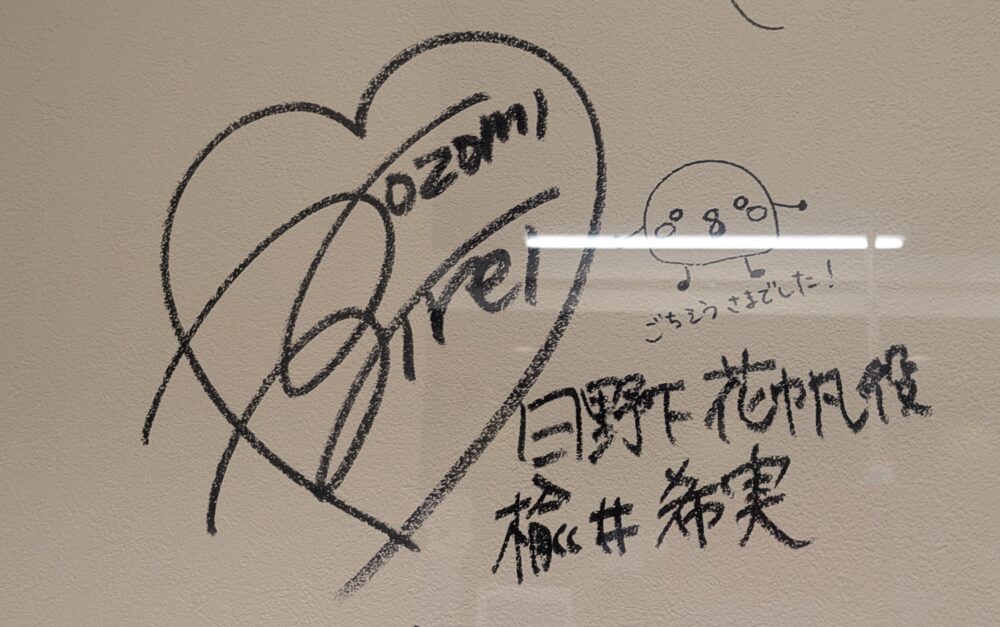 Nozomi
Nirei
ごちそうさまでした!
日野下花帆役
楡井希実